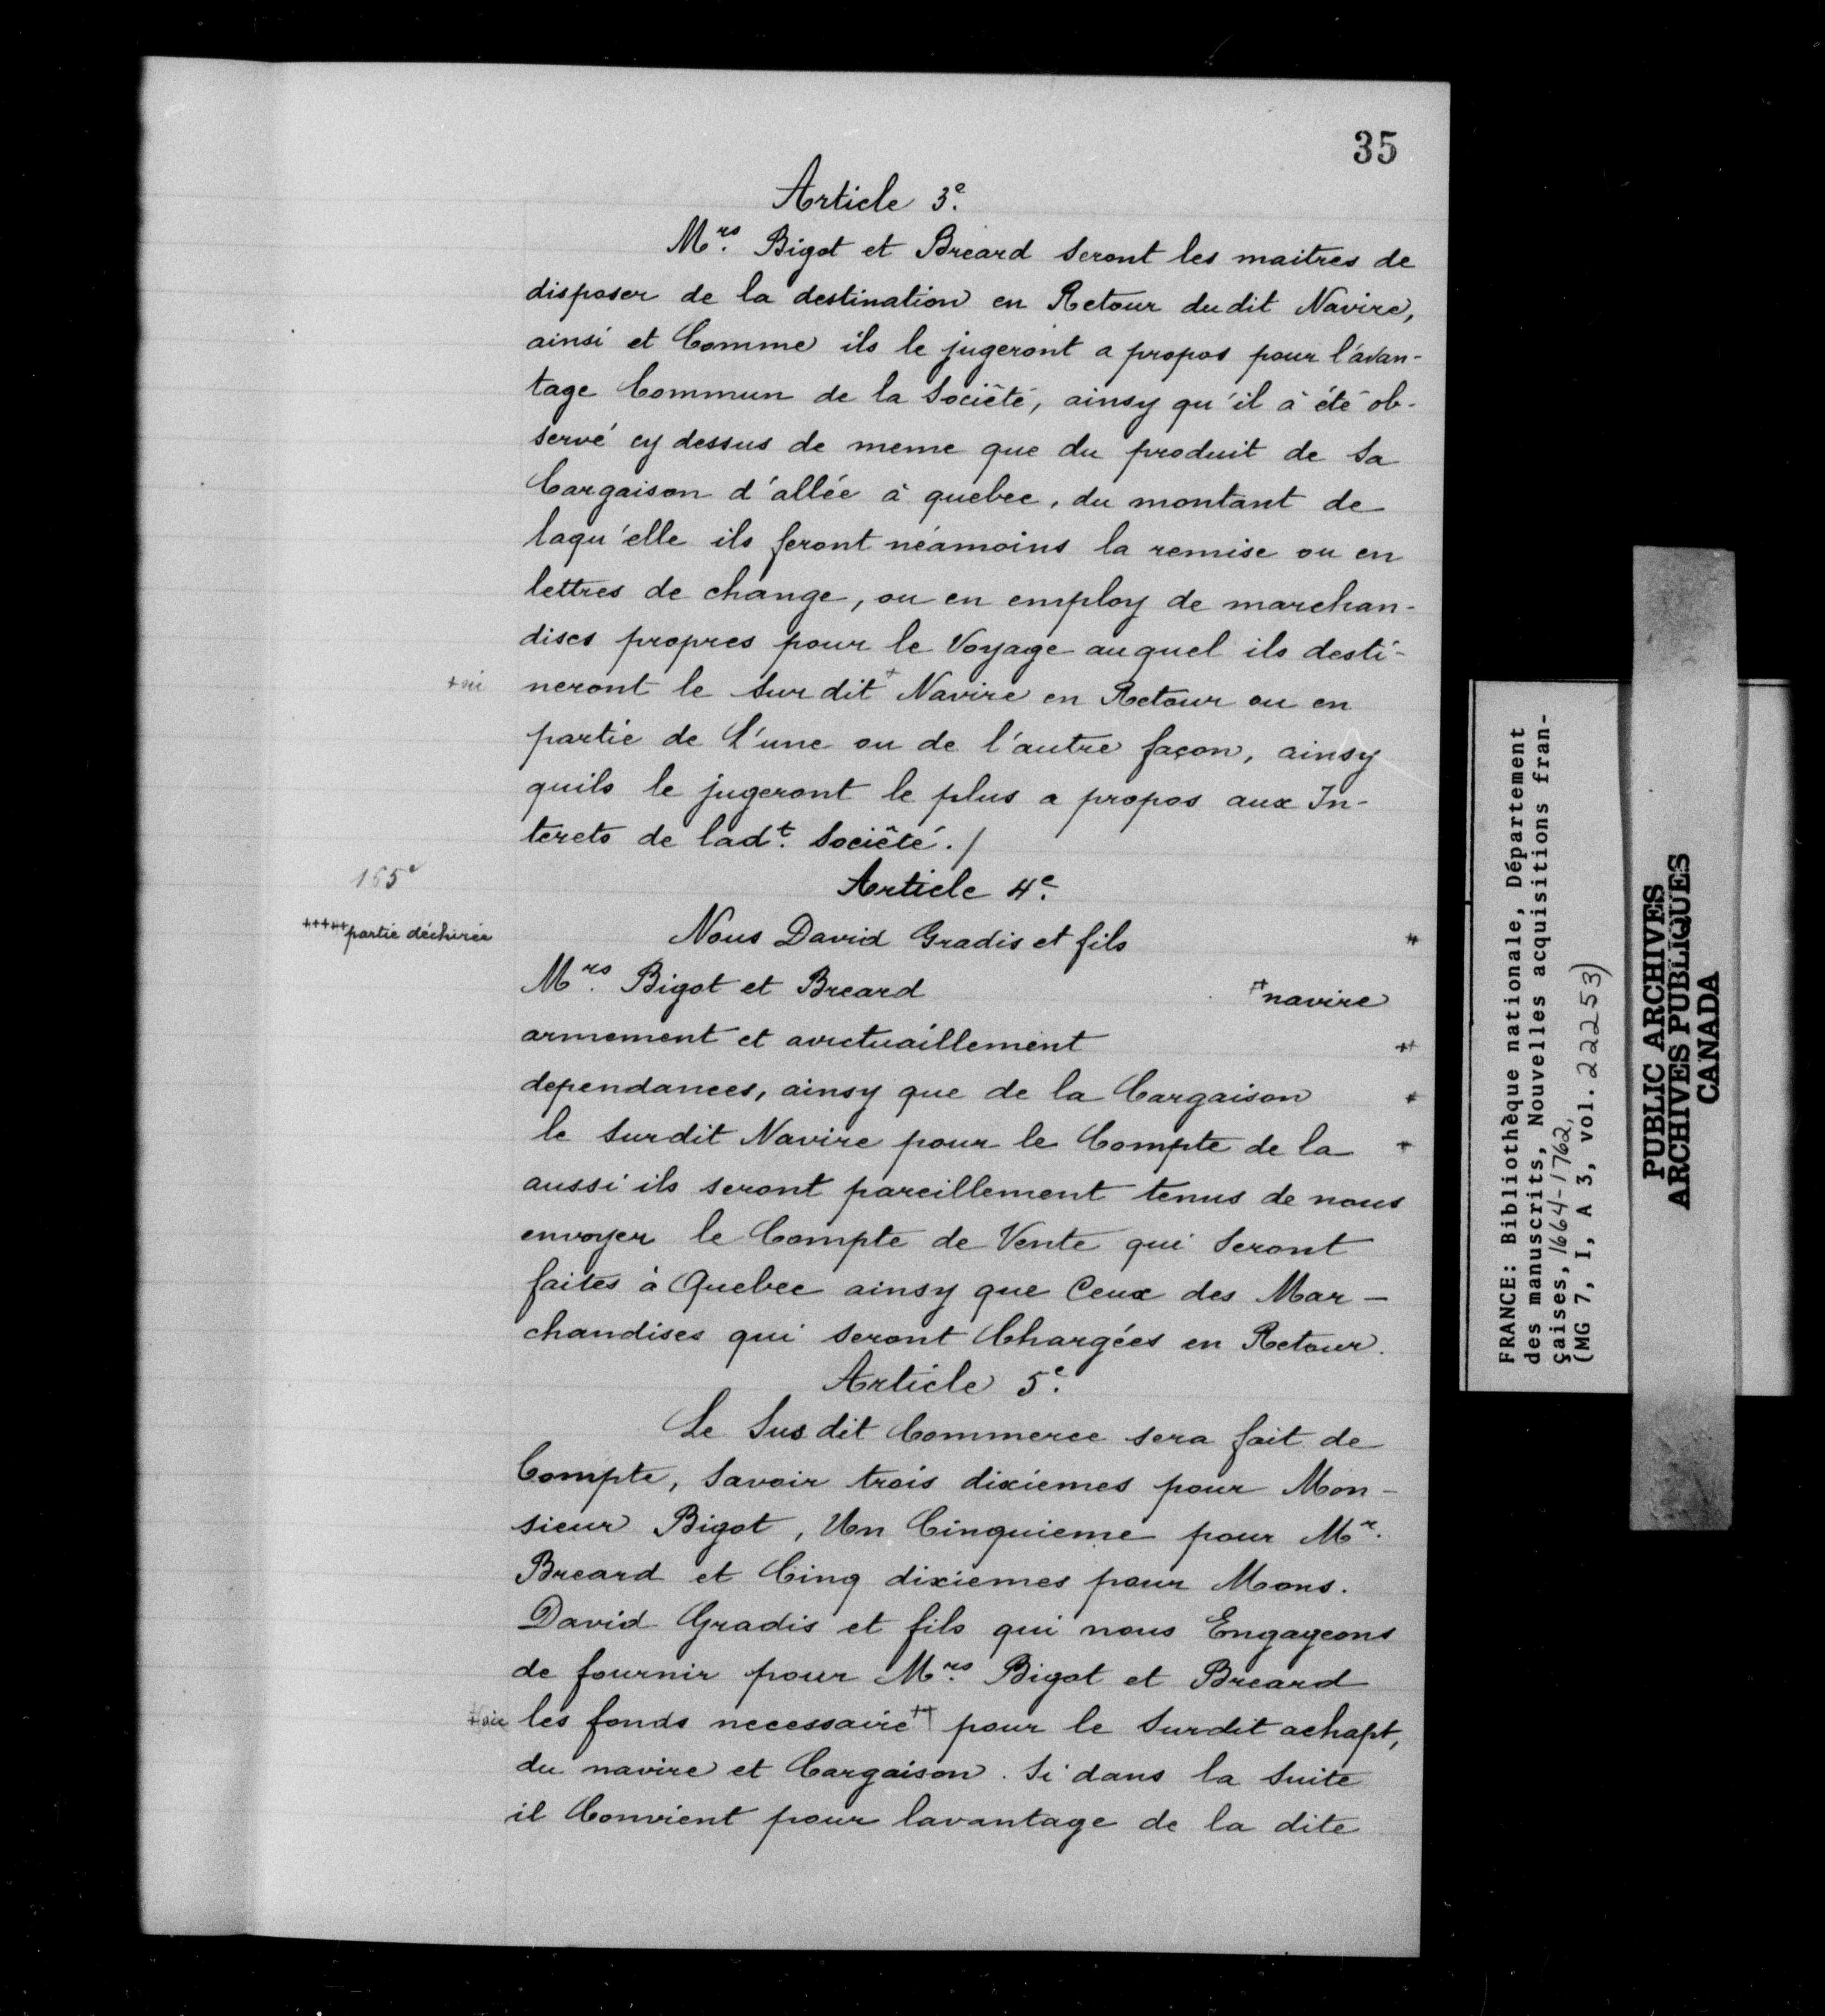 35
Article 3e.
Mrs. Bigot et Breard seront les maitres de
disposer de la destination en Retour du dit Navire,
ainsi et Comme ils le jugeront a propos pour l'avan-
tage Commun de la Société, ainsy qu'il à été ob-
servé cy dessus de meme que du produit de sa
Cargaison d'allée à quebec, du montant de
laqu'elle ils feront néamoins la remise ou en
lettres de change, ou en employ de marchan-
dises propres pour le Voyage auquel ils desti-
neront le surdit + Navire en Retour ou en
partie de l'une ou de l'autre façon, ainsy
quils le jugeront le plus a propos aux In-
terets de ladt. Société./
155e
Article 4e.
+++++ partie déchirée
Nous David Gradis et fils +
Mrs. Bigot et Breard + navire
armement et avictuaillement ++
dependances, ainsy que de la Cargaison +
le surdit Navire pour le Compte de la +
aussi ils seront pareillement tenus de nous
envoyer le Compte de Vente qui seront
faites à Quebec ainsy que Ceux des Mar-
chandises qui seront Chargées en Retour.
Article 5e.
Le Sus dit Commerce sera fait de
Compte, Savoir trois dixiemes pour Mon-
sieur Bigot, Un Cinquieme pour Mr.
Breard et Cinq dixiemes pour Mons.
David Gradis et fils qui nous Engageons
de fournir pour Mrs. Bigot et Breard
les fonds necessaire ++ pour le surdit achapt,
du navire et Cargaison. Si dans la Suite
il Convient pour lavantage de la dite
FRANCE: Bibliothèque nationale, Département
des manuscrits, Nouvelles acquisitions fran-
çaises, 1664-1762,
(MG 7, I, A 3, vol. 22253)
PUBLIC ARCHIVES
ARCHIVES PUBLIQUES
CANADA